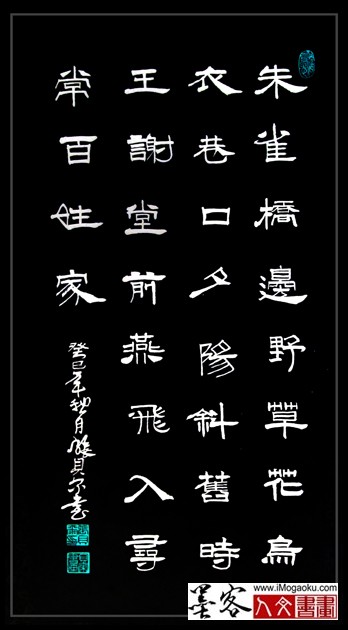 朱雀橋邊野草花烏
衣巷口夕陽斜舊時
王謝堂前燕飛入尋
常百姓家
癸巳年秋月
墨客
www.iMogaoku.com
人文書畫